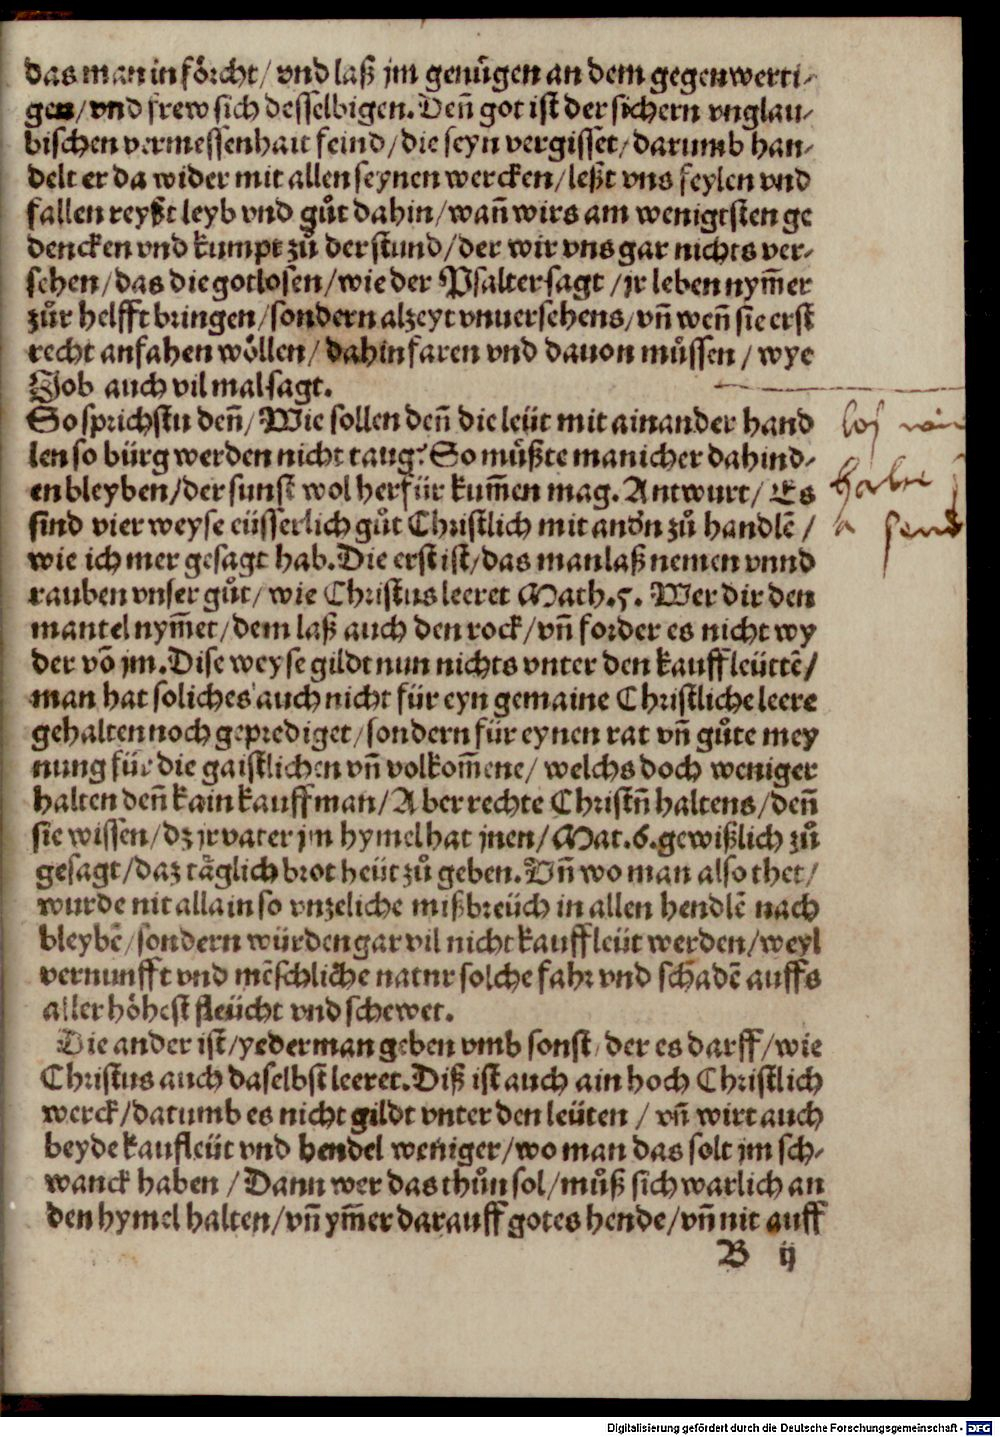 das man in foͤrcht/ vnd laß jm genuͤgen an dem gegenwerti⸗
gen/ vnd frew sich desselbigen. Deñ got ist der sichern vnglau⸗
bischen vermessenhait feind/ die seyn vergisset/ darumb han⸗
delt er da wider mit allen seynen wercken/ leßt vns feylen vnd
fallen reyßt leyb vnd guͦt dahin/ wañ wirs am wenigtsten ge
dencken vnd kumpt zuͦ der stund/ der wir vns gar nichts ver⸗
sehen/ das die gotlosen/ wie der Psalter sagt / jr leben nym̃er
zuͦr helfft bringen/ sondern alzeyt vnuersehens/ vñ weñ sie erst
recht anfahen woͤllen/ dahin faren vnd dauon muͤssen/ wye
Job auch vil mal sagt.
So sprichstu deñ/ Wie sollen deñ die leüt mit ainander hand
len so bürg werden nicht taug? So muͤßte manicher dahind⸗
en bleyben/ der sunst wol herfür kum̃en mag. Antwurt/ Es
sind vier weyse eüsserlich guͦt Christlich mit andn̄ zuͦ handlẽ /
wie ich mer gesagt hab. Die erst ist/ das man laß nemen vnnd
rauben vnser guͦt/ wie Christus leeret Math.5. Wer dir den
mantel nym̃et/ dem laß auch den rock/ vñ forder es nicht wy
der võ jm. Dise weyse gildt nun nichts vnter den kauffleüttẽ/
man hat soliches auch nicht für eyn gemaine Christliche leere
gehalten noch geprediget/ sondern für eynen rat vñ guͦte mey
nung für die gaistlichen vñ volkom̃ene/ welchs doch weniger
halten deñ kain kauffman/ Aber rechte Christñ haltens/ deñ
sie wissen/ dz jr vater jm hymel hat jnen/ Mat.6. gewißlich zuͦ
gesagt/ daz taͤglich brot heüt zuͦ geben. Vñ wo man also thet/
wurde nit allain so vnzeliche mißbreüch in allen hendlẽ nach
bleybẽ/ sondern würden gar vil nicht kauffleüt werden/ weyl
vernunfft vnd mẽschliche natur solche fahr vnd schadẽ auffs
aller hoͤhest fleücht vnd schewet.
Die ander ist/ yederman geben vmb sonst/ der es darff/ wie
Christus auch daselbst leeret. Diß ist auch ain hoch Christlich
werck/ darumb es nicht gildt vnter den leüten / vñ wirt auch
beyde kaufleüt vnd hendel weniger/ wo man das solt jm sch⸗
wanck haben / Dann wer das thuͦn sol/ muͦß sich warlich an
den hymel halten/ vñ ym̃er darauff gotes hende/ vñ nit auff
B ij
Digitalisierung gefördert durch die Deutsche Forschungsgemeinschaft - DFG